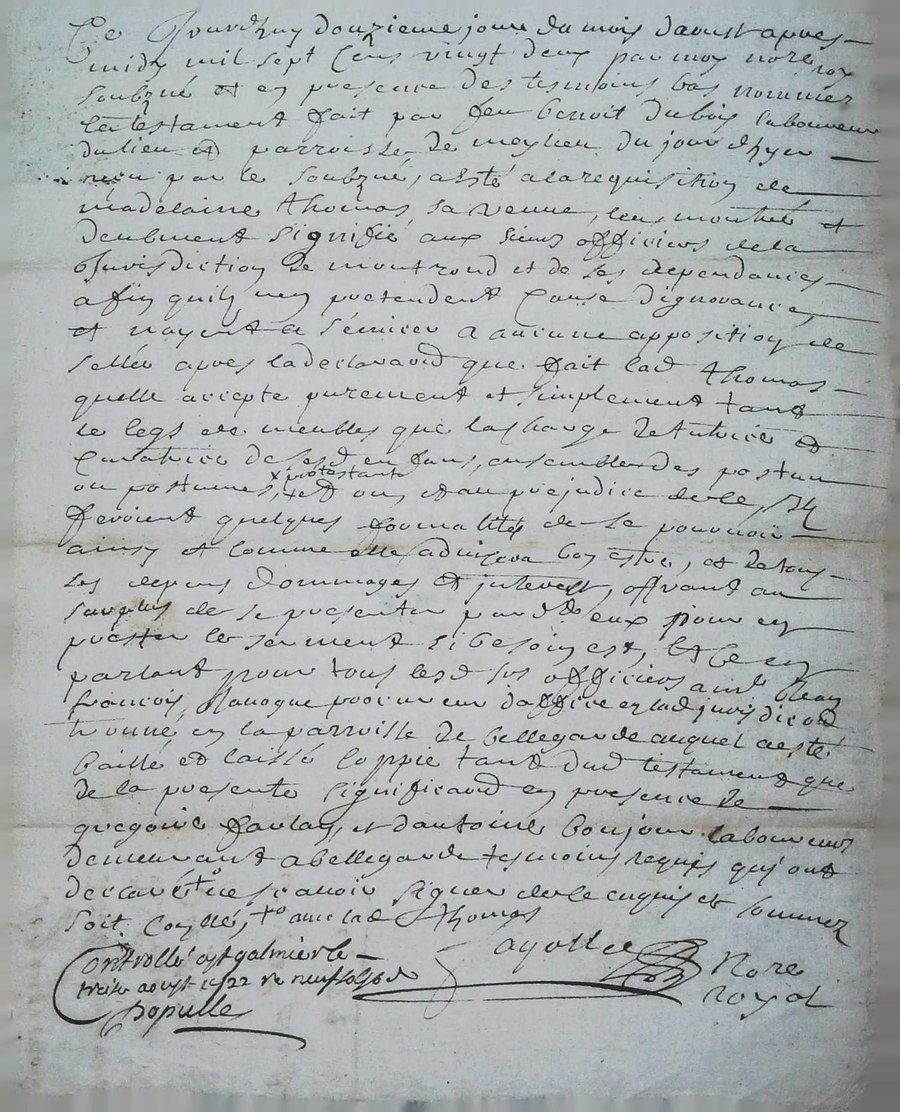 Ce Jourdhuy douzieme jour du mois daoust apres
midy mil sept Cens vingt deux par moy nore roy
soubzné et en presence des tesmoins bas nommez
le testament fait par feu benoit dubois laboureur
du lieu et parroisse de meylieu du jour dhyer
receu par le soubzné, a esté a la requisition de
madelaine thomas sa veuve, leu monstré et
deubment signiffié aux sieurs officiers de la
Jurisdiction de montrond et de ses dependances
afin quilz nen pretendent Cause dignorance,
et nayent a a aucune apposition de
sellés apres la declaraon que fait lad thomas
quelle accepte purement et simplement tant
le legs de meubles que la charge de tutrice et
Curatrice de sesd enfans, ensemble des postum
ou postumes, protestante ou et au prejudice de ce, Ilz
feroient quelques formalités de se pourvoir
ainsy et comme elle advisera bon estre, et de tous
les depens dommages et interest, offrant au
surplus de se presenter pardt eux pour en
prester le serment si besoin est, Et ce en
parlant pour tous lesd srs officiers a Jean
francois procureur doffice en lad jurisdicon
trouvé en la parroisse de bellegarde auquel a esté
baillé et laissé Coppie tant dud testament que
de la presente significaon en presence de
gregoire et dantoine bonjour laboureurs
demeurant a bellegarde tesmoins requis qui ont
declaré ne scavoir signer de ce enquis et sommez
soit avec lad thomas
Nore
royal
Controllé a st galmier le
treize aoust 1722 re neuf sols 6 d
Populle